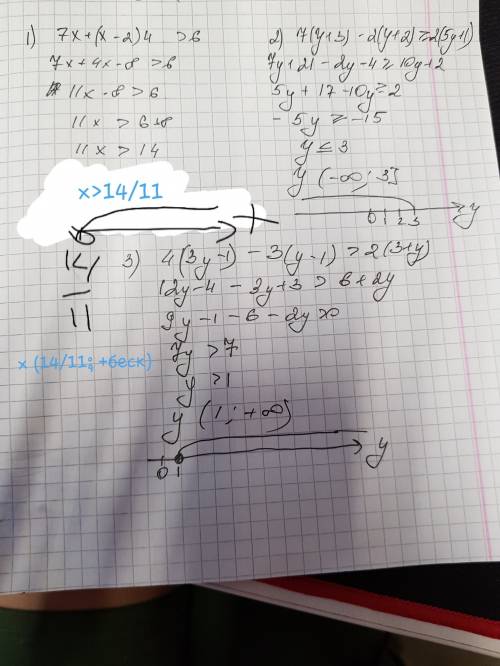 1) 7x+(x-2)4 >6
7x+4x-8>6
11x-8>6
11x > 6+8
11x > 14
x>14/11
14/
11
x (14/11; +беск)
2) 7(y+3)-2(y+2)≥2(5y+1)
7y+21-2y-4≥10y+2
5y+17-10y≥2
-5y≥-15
y≤3
y (-∞; 3]
0 1 2 3 y
3) 4(3y-1)-3(y-1)>2(3+y)
12y-4-3y+3>6+2y
9y-1-6-2y>0
7y>7
y>1
y (1; +∞)
0 1 y